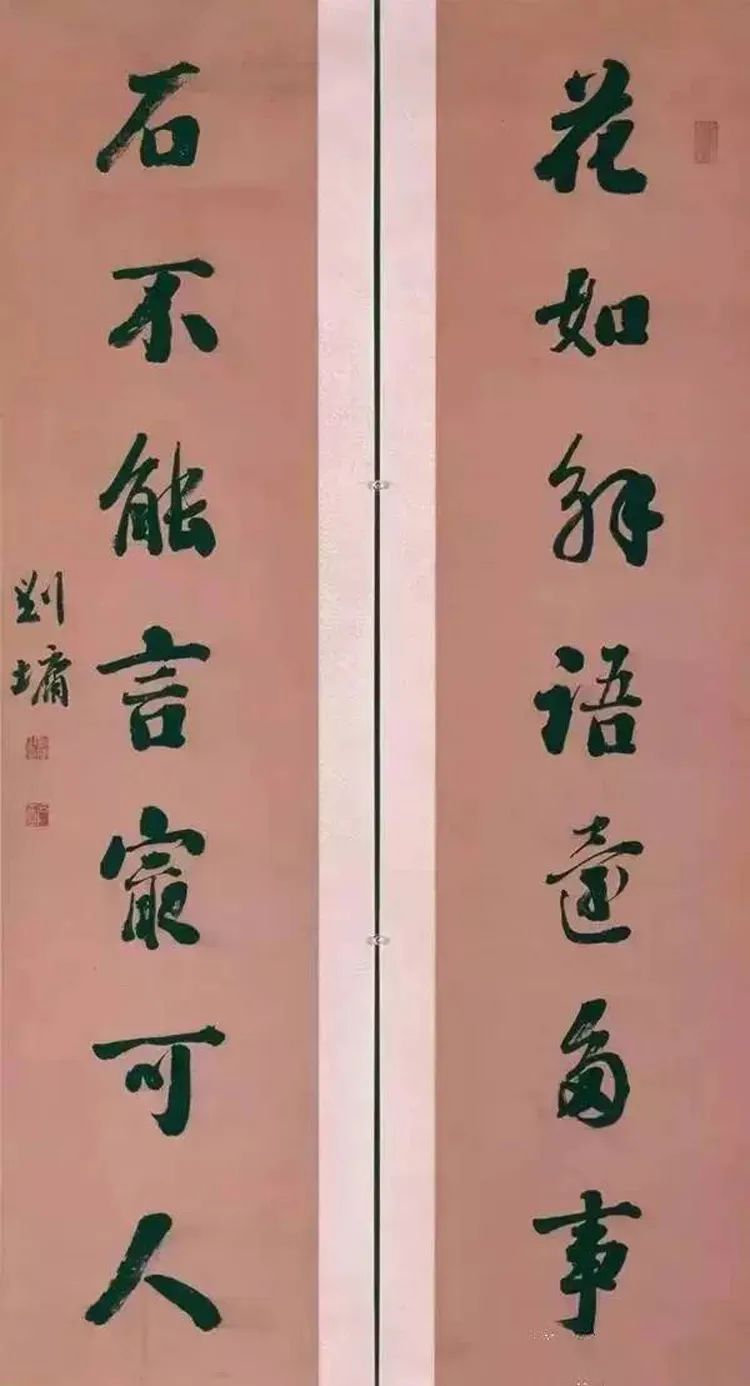 花如解语还多事
石不能言最可人
刘墉